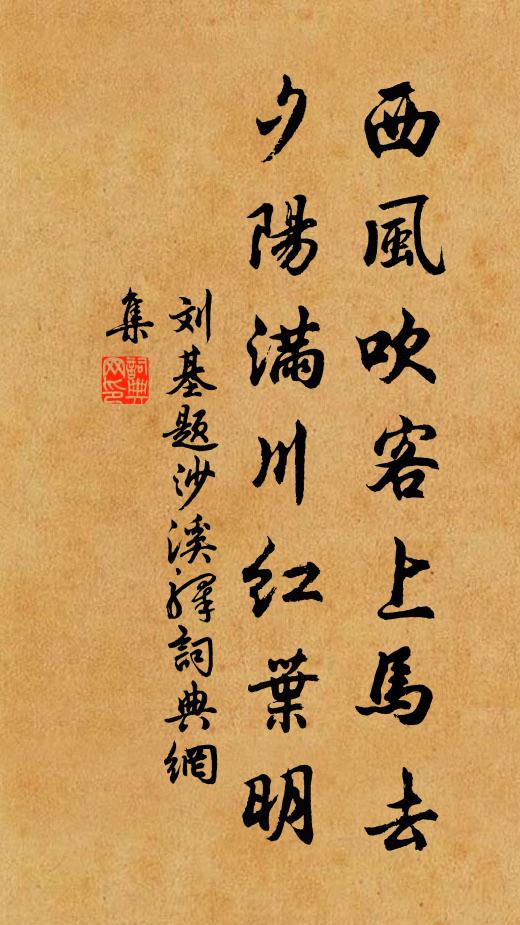 西風吹客上馬去
夕陽滿川紅葉明
刘基题沙溪驛詞典網
集
詞典
网印